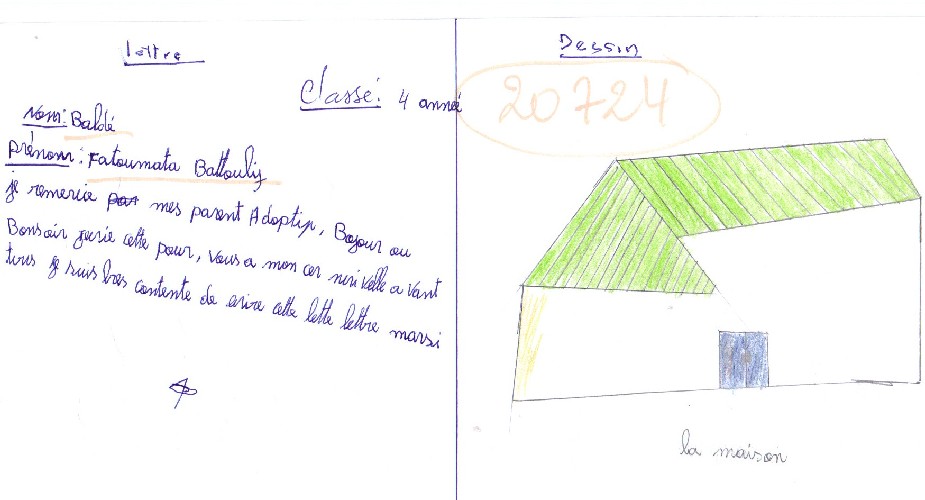 lettre
Classé: 4 année
Nom: Baldé
Prénom: Fatoumata Battouliy
je remercie par mes parent Adoptip, Bojour ou
Bonsoir jecrie cette pour, vous a mon cer a vant
tous je suis bres contente de erire cette lette lettre marsi
Dessin
20724
la maison